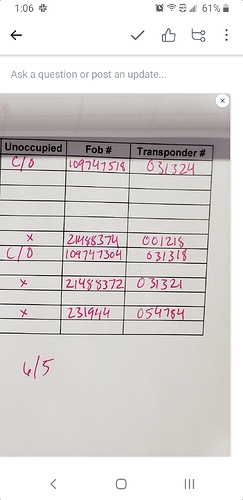 1:06 61%
Ask a question or post an update...
Unoccupied Fob # Transponder #
C/O 109747518 031324
x 21488374 001218
C/O 109747304 031318
x 21488372 031321
x 231944 054784
6/5